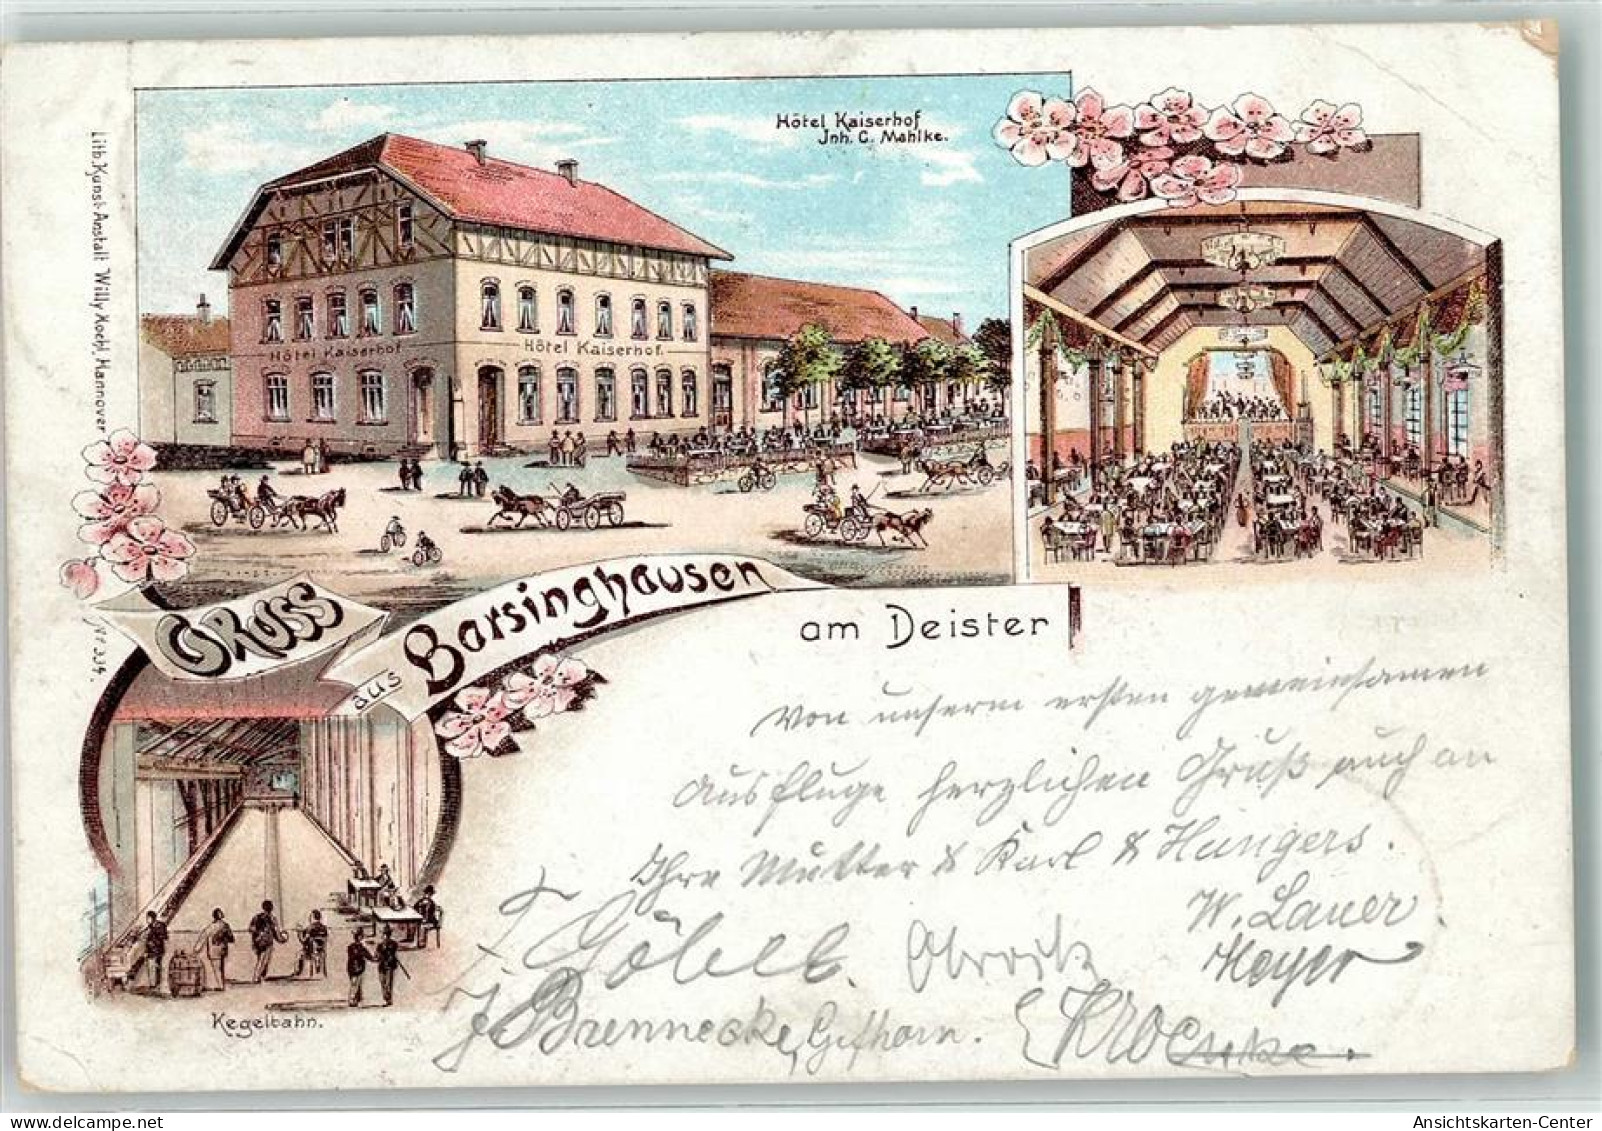 Hôtel Kaiserhof
Jnh. C. Mahlke.
Hôtel Kaiserhof
Hôtel Kaiserhof.
Lith. Kunst-Anstalt Willy Hoebl, Hannover
Nº 334.
GRUSS
aus Barsinghausen
am Deister
Von unserm ersten gemeinsamen
Ausfluge herzlichen Gruß auch an
Ihre Mutter & Karl & Hungers.
W. Lauer
Göbel.
Meyer
J. Brennecke, Gifhorn.
Kegelbahn.
Ansichtskarten-Center